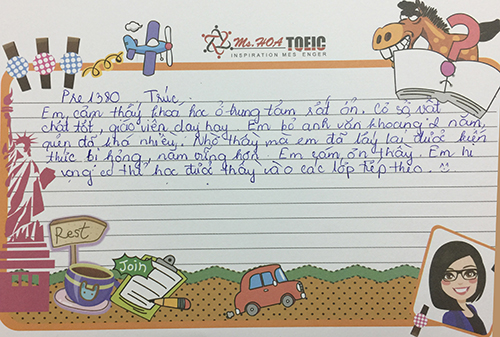 Ms.HOA TOEIC
INSPIRATION MESSENGER
Pre 1380 Trúc.
Em cảm thấy khoá học ở trung tâm rất ổn. Cơ sở vật
chất tốt, giáo viên dạy hay. Em bỏ anh văn khoảng 2 năm,
quên đã khá nhiều. Nhờ thầy mà em đã lấy lại được kiến
thức bị hỏng, nắm vững hơn. Em cảm ơn thầy. Em hi
vọng có thể học được thầy vào các lớp tiếp theo.
Rest
Join